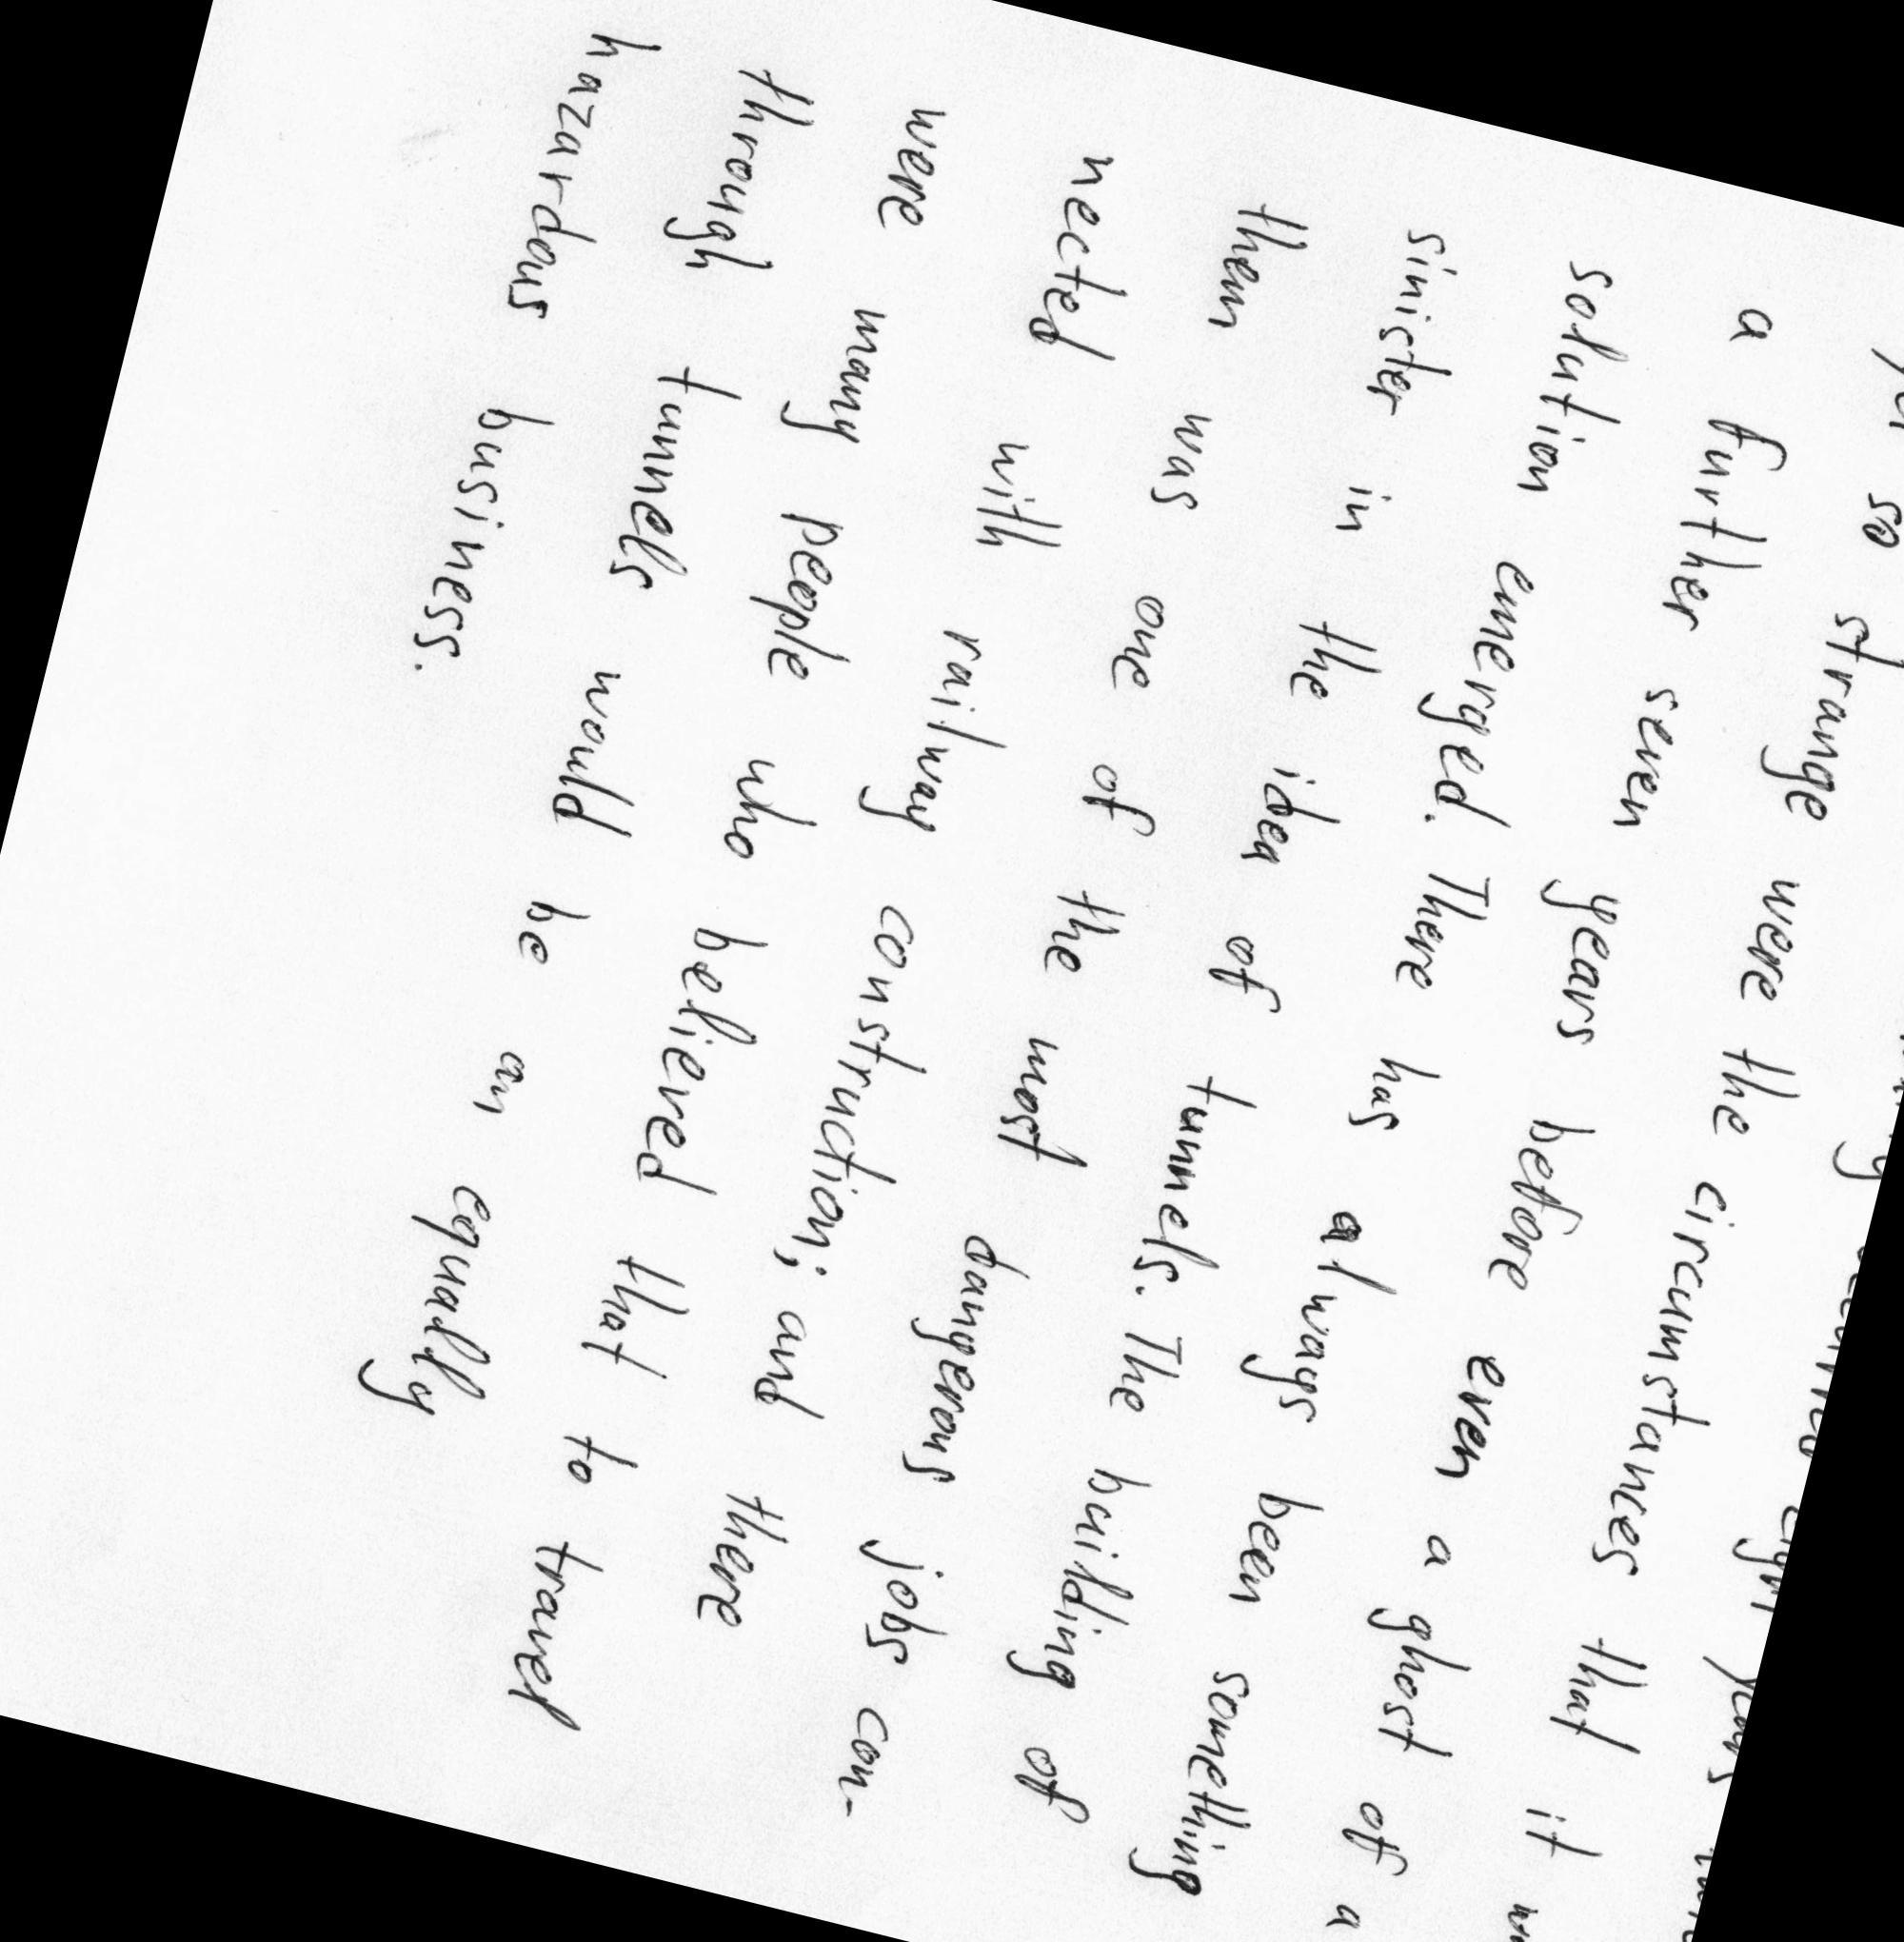 so strange were the circumstances that it
a further seven years before even a ghost of a
solution emerged. There has always been something
sinister in the idea of tunnels. The building of
them was one of the most dangerous jobs con-
nected with railway construction; and there
were many people who believed that to travel
through tunnels would be an equally
hazardous business.